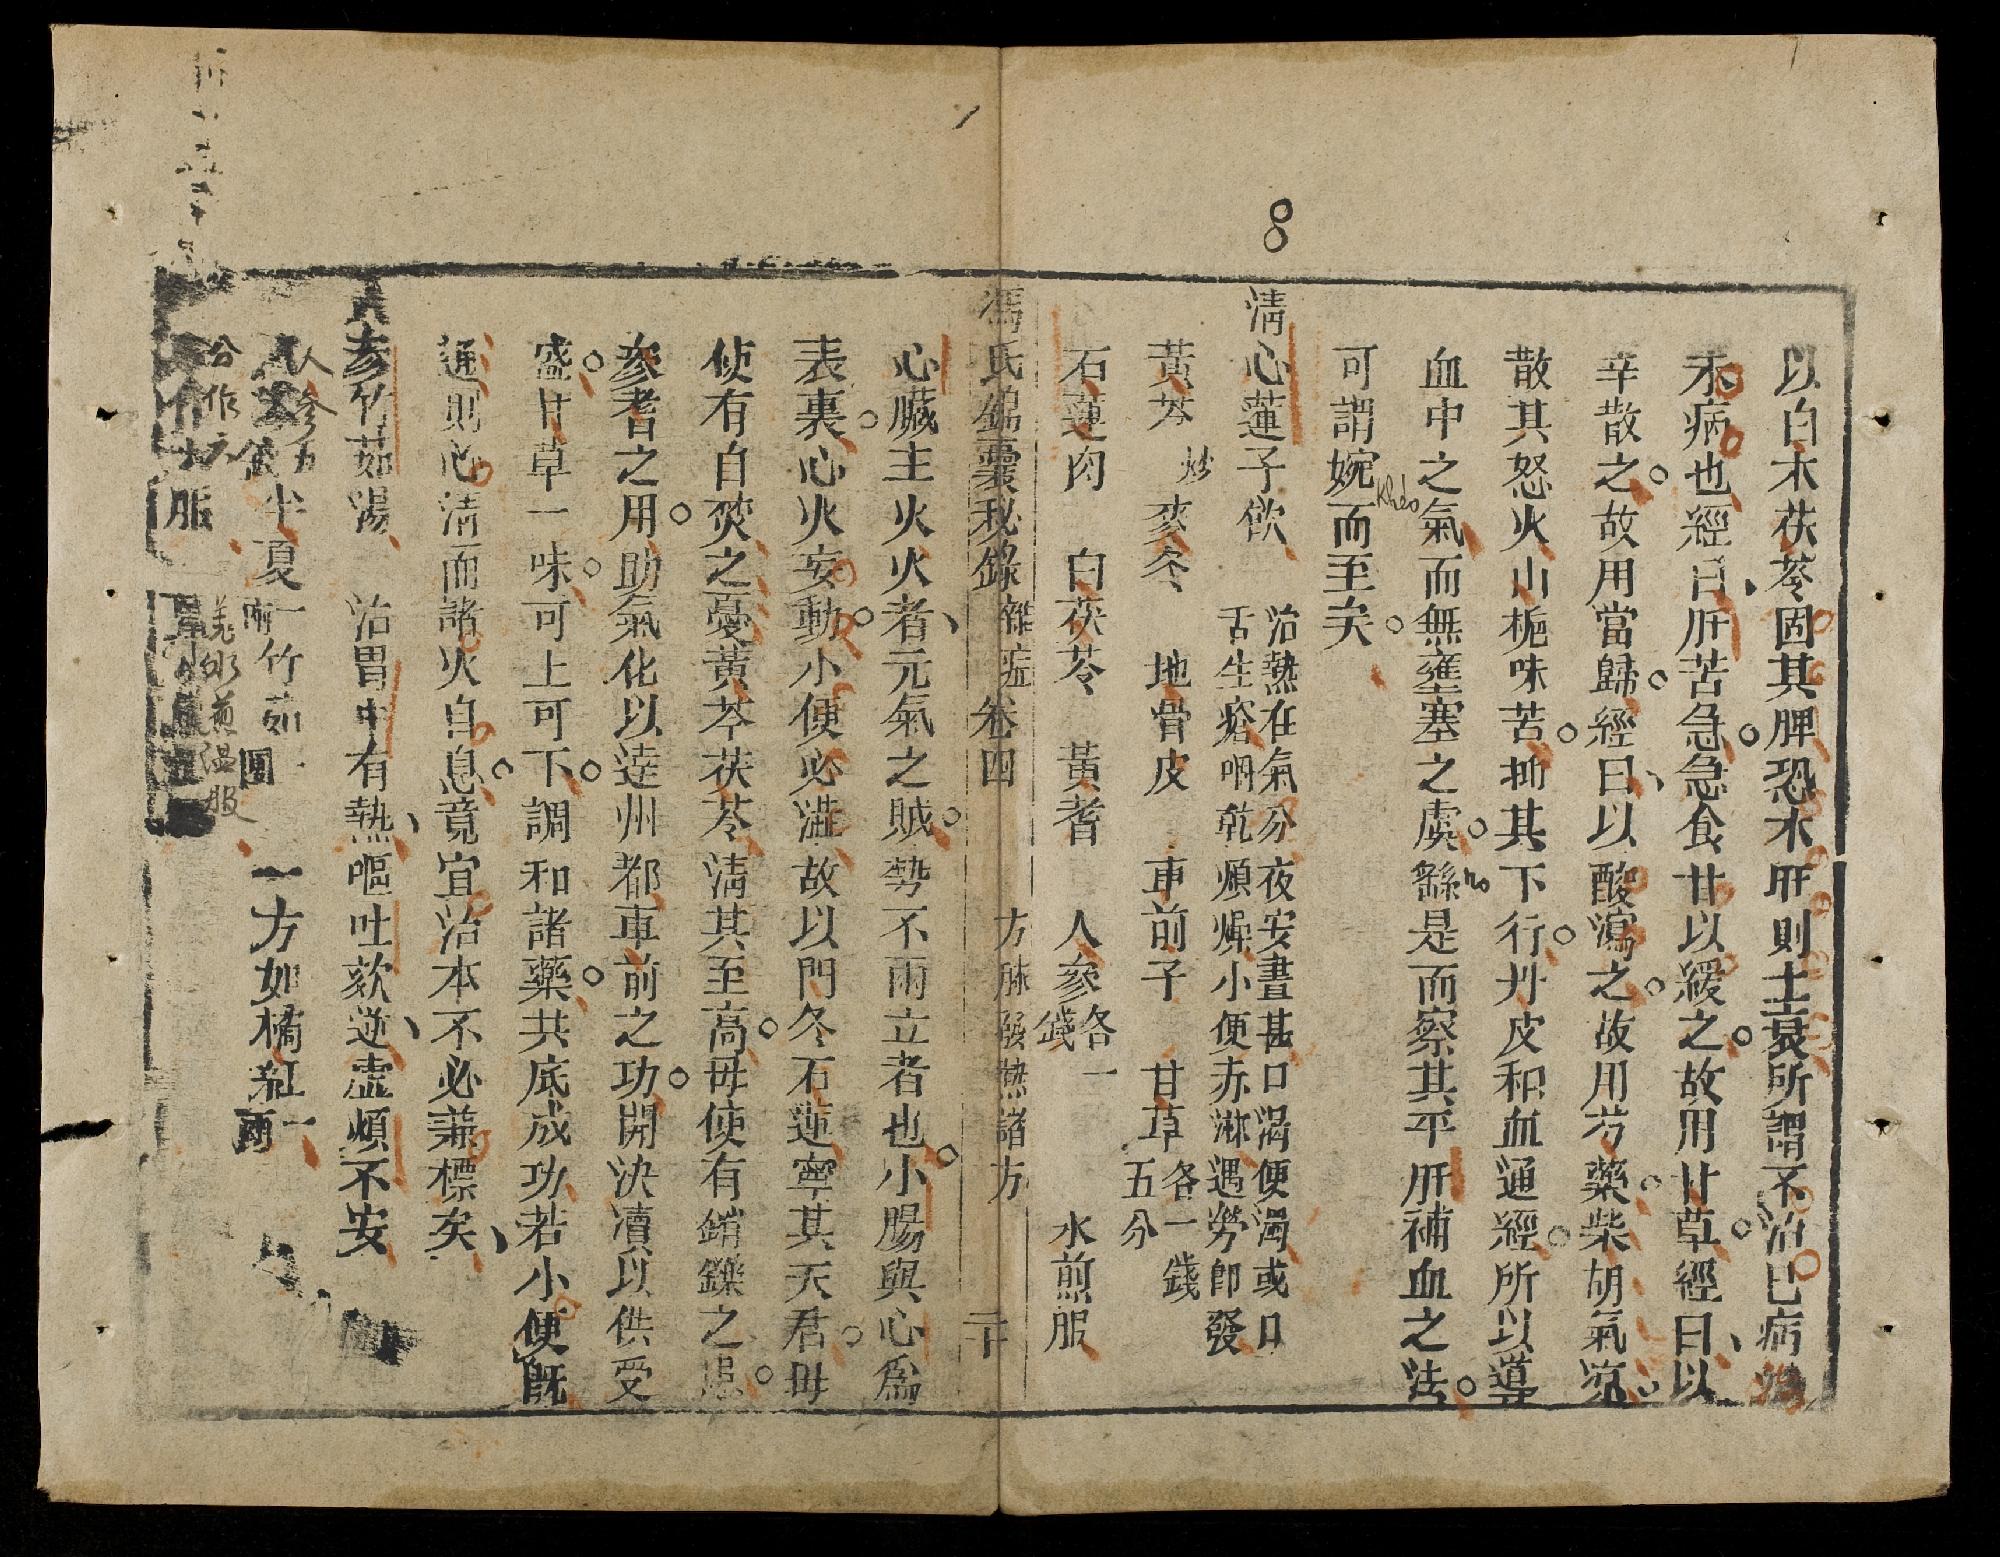 以白术茯苓固其脾恐木肝則土衰所謂不治已病治
未病也經曰肝苦急急食甘以緩之故用甘草經曰以
辛散之故用當歸經曰以酸瀉之故用芍藥柴胡氣凉
散其怒火山梔味苦抑其下行丹皮和血通經所以導
血中之氣而無壅塞之虞繇是而察其平肝補血之法
可謂婉而至矣
khéo
no
8
清心蓮子飲 治熱在氣分夜安晝甚口渴便濁或口
舌生瘡咽乾煩燥小便赤淋遇勞即發
黃芩炒 麥冬 地骨皮 車前子 甘草各一錢五分
石蓮肉 白茯苓 黃耆 人參各一錢 水煎服
馮氏錦囊秘錄 雜症卷四 方脉發熱諸方 二十
心臟主火火者元氣之賊勢不兩立者也小腸與心爲
表裏心火妄動小便必澁故以門冬石蓮寧其天君毋
使有自焚之憂黃芩茯苓清其至高毋使有銷鑠之患
參耆之用助氣化以達州都車前之功開決瀆以供受
盛甘草一味可上可下調和諸藥共底成功若小便既
通則心清而諸火自息竟宜治本不必兼標矣
人參竹茹湯 治胃中有熱嘔吐欬逆虛煩不安
人參五錢 半夏一兩 竹茹一團 一方加橘紅一兩
分作六服 姜水煎溫服